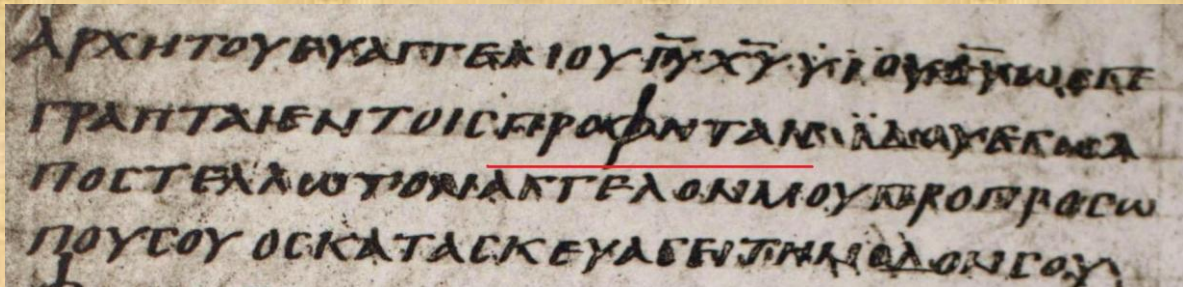 ΑΡΧΗΤΟΥΕΥΑΓΓΕΛΙΟΥΙ̅Υ̅Χ̅Υ̅ΫΪΟΥΘ̅Υ̅ΩϹΓΕ
ΓΡΑΠΤΑΙΕΝΤΟΙϹΠΡΟΦΗΤΑΙϹΪΔΟΥΕΓΩΑ
ΠΟϹΤΕΛΛΩΤΟΝΑΓΓΕΛΟΝΜΟΥΠΡΟΠΡΟϹΩ
ΠΟΥϹΟΥΟϹΚΑΤΑϹΚΕΥΑϹΕΙΤΗΝΟΔΟΝϹΟΥ